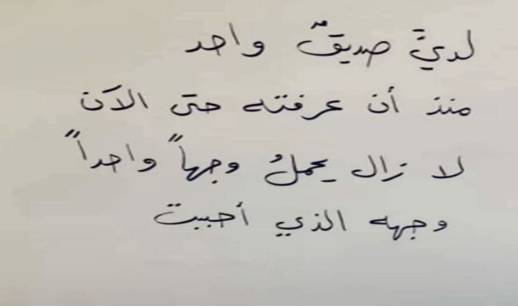 لديَّ صديقٌ واحد
منذ أن عرفته حتى الآن
لا زال يحملُ وجهاً واحداً
وجهه الذي أحببت